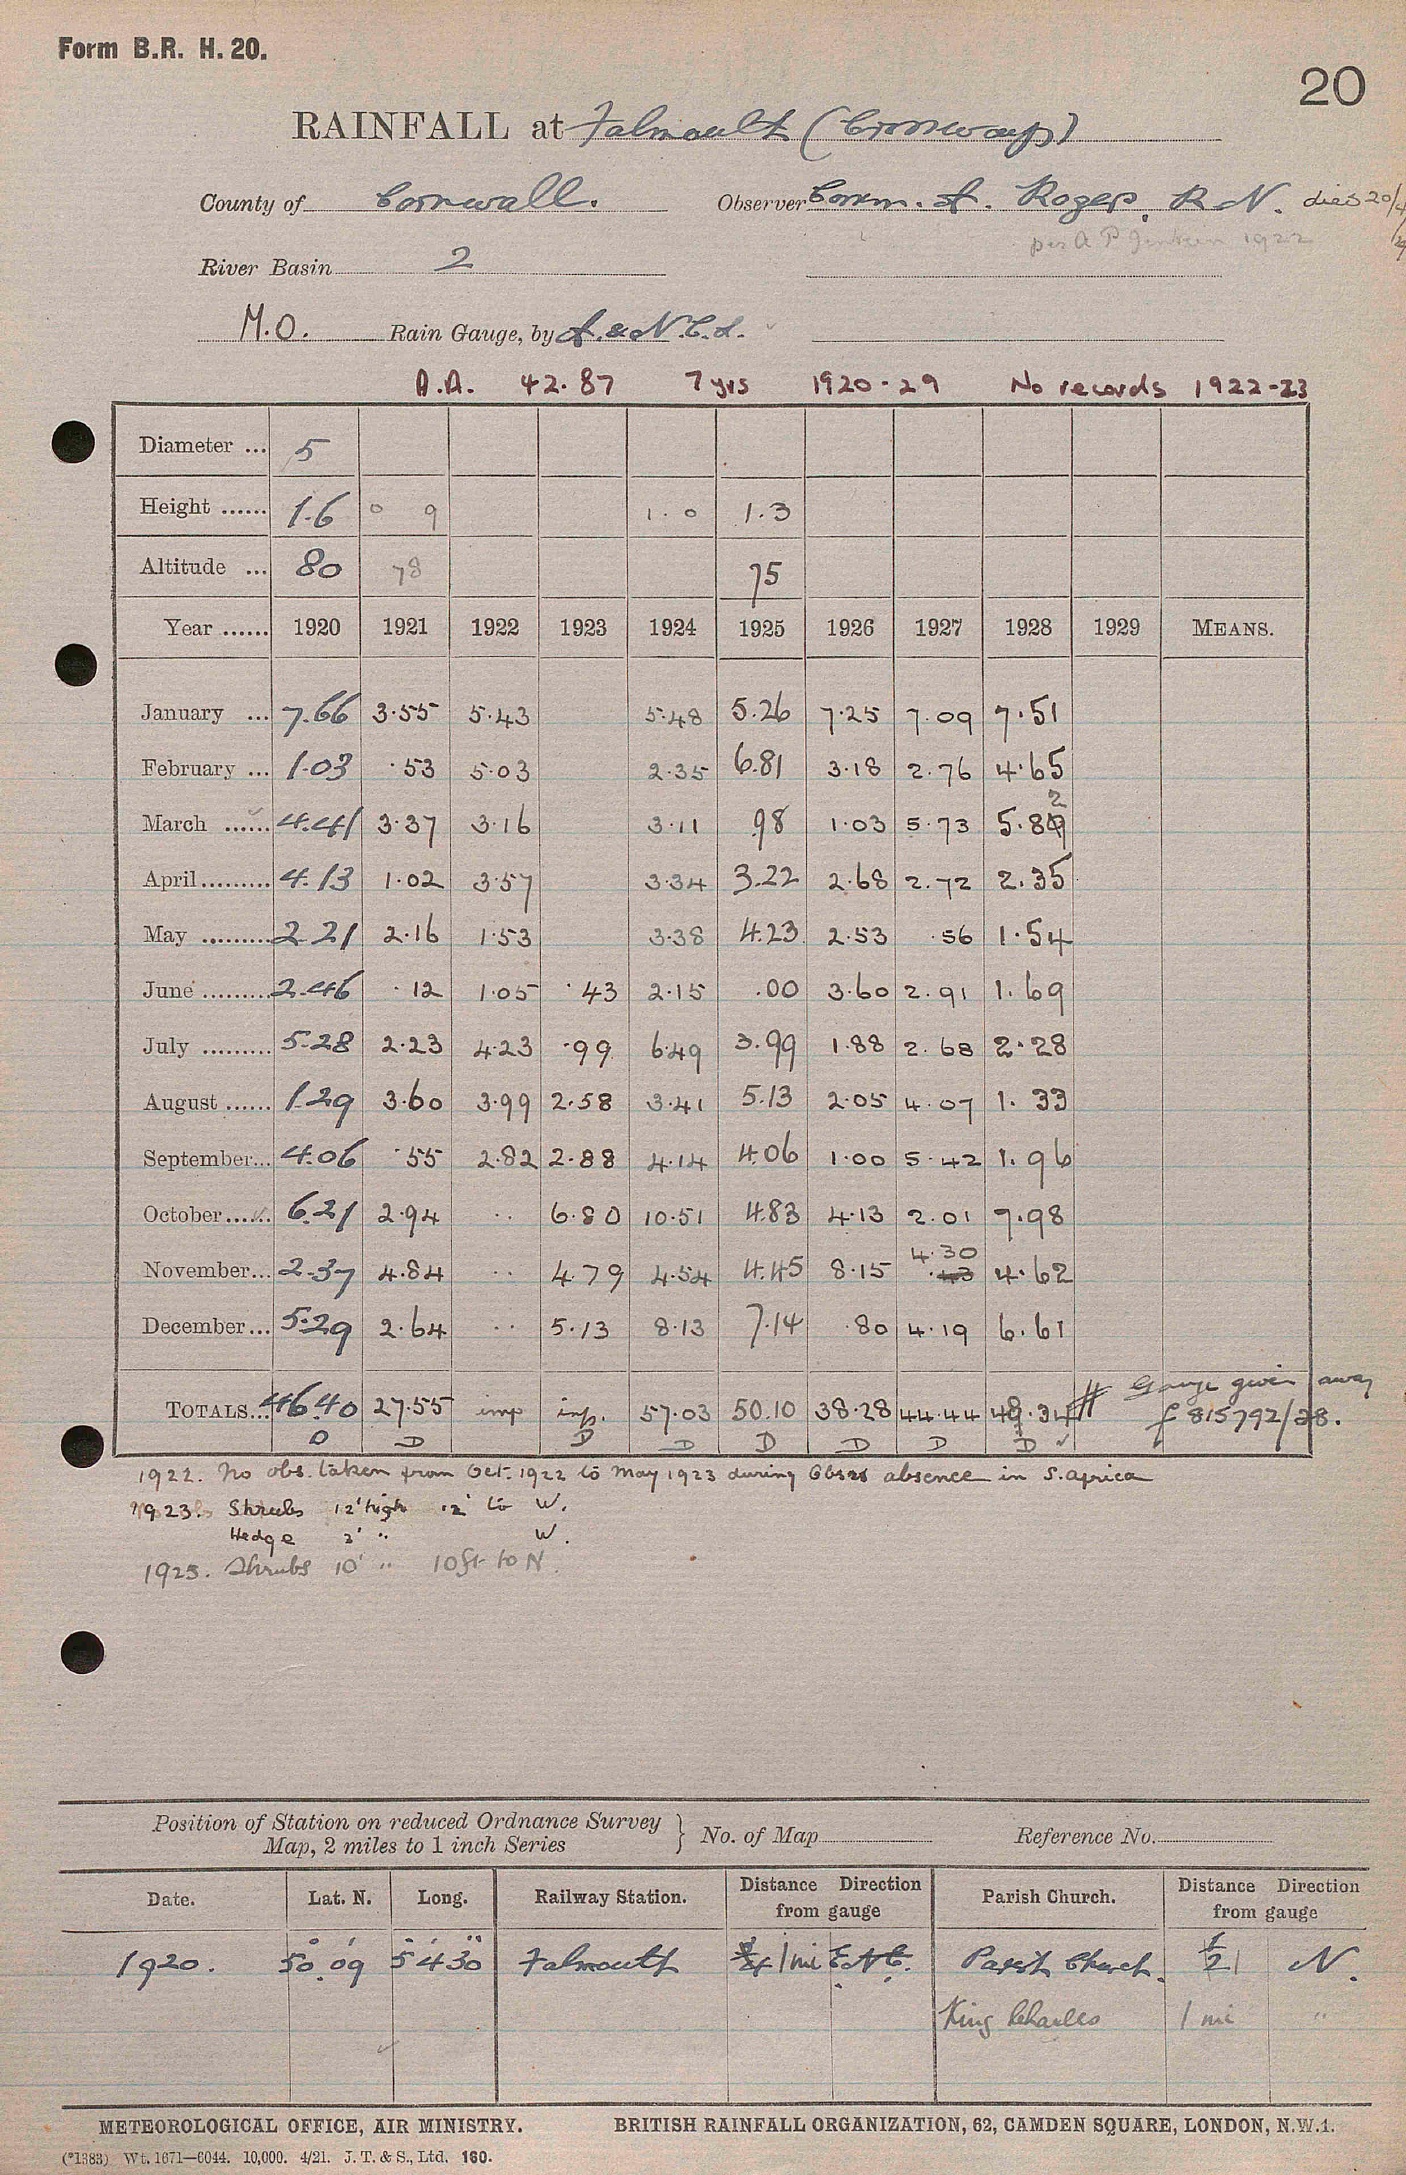 Form B.R. H. 20.
20
RAINFALL at Falmouth (Crossways)
County of Cornwall. Observer Comm. A. Rogers. R.N. died 20/4
per A P Jenkin 1922
River Basin 2
M.O. Rain Gauge, by A. & N.C.S.
A.A. 42.87 7 yrs 1920-29 No records 1922-23
Diameter ... 5
Height ...... 1.6 0 9 1.0 1.3
Altitude ... 80 78 75
Year ...... 1920 1921 1922 1923 1924 1925 1926 1927 1928 1929 MEANS.
January ... 7.66 3.55 5.43 5.48 5.26 7.25 7.09 7.51
February ... 1.03 .53 5.03 2.35 6.81 3.18 2.76 4.65
2
March ...... 4.41 3.37 3.16 3.11 .98 1.03 5.73 5.89
April ......... 4.13 1.02 3.57 3.34 3.22 2.68 2.72 2.35
May ......... 2.21 2.16 1.53 3.38 4.23 2.53 .56 1.54
June ......... 2.46 .12 1.05 .43 2.15 .00 3.60 2.91 1.69
July ......... 5.28 2.23 4.23 .99 6.49 3.99 1.88 2.68 2.28
August ...... 1.29 3.60 3.99 2.58 3.41 5.13 2.05 4.07 1.33
September... 4.06 .55 2.82 2.88 4.14 4.06 1.00 5.42 1.96
October ...... 6.21 2.94 .. 6.80 10.51 4.83 4.13 2.01 7.98
4.30
November... 2.37 4.84 .. 4.79 4.54 4.45 8.15 .43 4.62
December ... 5.29 2.64 .. 5.13 8.13 7.14 .80 4.19 6.61
TOTALS... 46.40 27.55 imp imp. 57.03 50.10 38.28 44.44 48.34 # Gauge given away
D D D D D D D D f 815792/28.
1922. No obs. taken from Oct. 1922 to May 1923 during Obsrs absence in S. Africa
1923. Shrubs 12' high 12' to W.
Hedge 3' " W.
1925. Shrubs 10' " 10ft to N.
Position of Station on reduced Ordnance Survey
Map, 2 miles to 1 inch Series } No. of Map Reference No.
Date. Lat. N. Long. Railway Station. Distance Direction from gauge Parish Church. Distance Direction from gauge
1920. 50° 09' 5° 4' 30" Falmouth 3/4 1 mi E.N.E. Parish Church. 1/2 N.
King Charles 1 mi "
METEOROLOGICAL OFFICE, AIR MINISTRY. BRITISH RAINFALL ORGANIZATION, 62, CAMDEN SQUARE, LONDON, N.W.1.
(*1383) Wt. 1671—6044. 10,000. 4/21. J. T. & S., Ltd. 160.